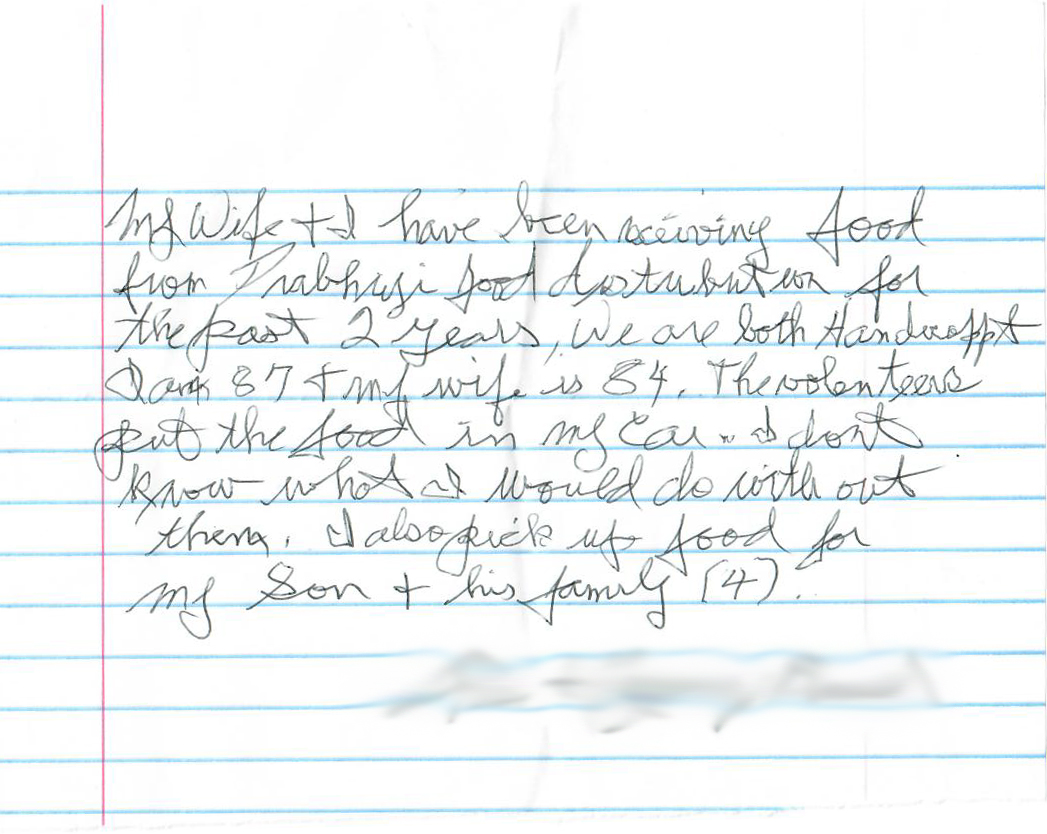 My Wife + I have been receiving food
from Prabhuji food distribution for
the past 2 years, We are both Handicappt
I am 87 + my wife is 84. The volenteers
put the food in my car. I dont
know what I would do with out
them. I also pick up food for
my Son + his family (4).